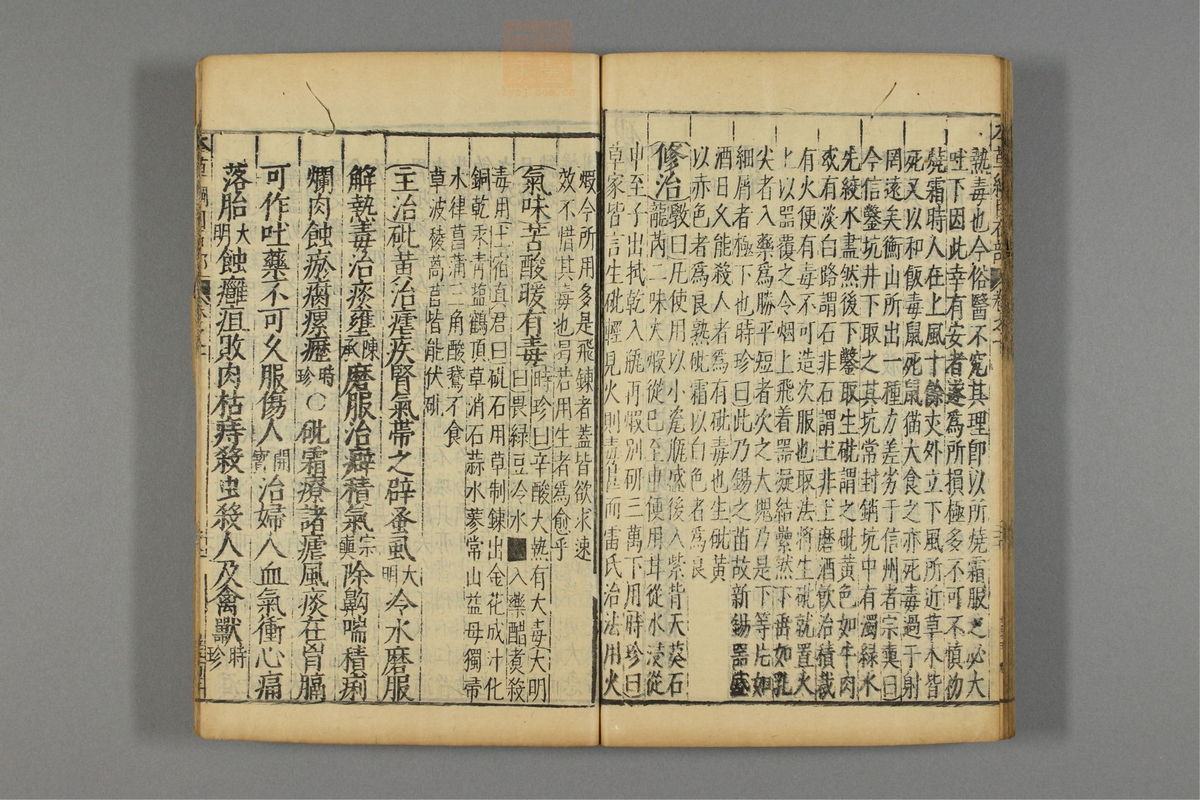 熱毒也今俗醫不究其理即以所燒霜服之必大
吐下因此幸有安者遂爲所損極多不可不慎初
燒霜時人在上風十餘丈外立下風所近草木皆
死又以和飯毒鼠死鼠猫犬食之亦死毒過于射
罔遠矣衡山所出一種力差劣于信州者宗奭曰
今信鑿坑井下取之其坑常封鎖坑中有濁綠水
先絞水盡然後下鑿取生砒謂之砒黄色如牛肉
或有淡白路謂石非石謂土非土磨酒飲治積氣
有火便有毒不可造次服也取法將生砒就置火
上以器覆之令烟上飛着器凝結纍然下垂如乳
尖者入藥爲勝平短者次之大塊乃是下等片如
細屑者極下也時珍曰此乃錫之苗故新錫器盛
酒日久能殺人者爲有砒毒也生砒黄
以赤色者爲良熟砒霜以白色者爲良
修治斅曰凡使用以小瓷瓶盛後入紫背天葵石
龍芮二味火煅從巳至申便用甘草水浸從
申至子出拭乾入瓶再煅別研三萬下用時珍曰
草家皆言生砒輕見火則毒甚而雷氏治法用火
煅今所用多是飛鍊者蓋皆欲求速
效不惜其毒也曷若用生者爲愈乎
氣味苦酸暖有毒時珍曰辛酸大熱有大毒大明
曰畏綠豆冷水■入藥醋煮殺
毒用土宿真君曰砒石用草制鍊出金花成汁化
銅乾汞青鹽鶴頂草消石蒜水蓼常山益母獨帚
水律菖蒲三角酸鵞不食
草波稜萵苣皆能伏砒
主治砒黄治瘧疾腎氣帶之辟蚤虱大明冷水磨服
解熱毒治痰壅陳承磨服治癖積氣宗奭除齁喘積痢
爛肉蝕瘀腐瘰癧時珍〇砒霜療諸瘧風痰在胷膈
可作吐藥不可久服傷人開寶治婦人血氣衝心痛
落胎大明蝕癰疽敗肉枯痔殺虫殺人及禽獸時珍